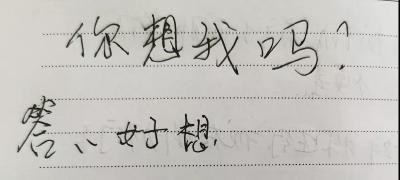 你想我吗？
答：好想